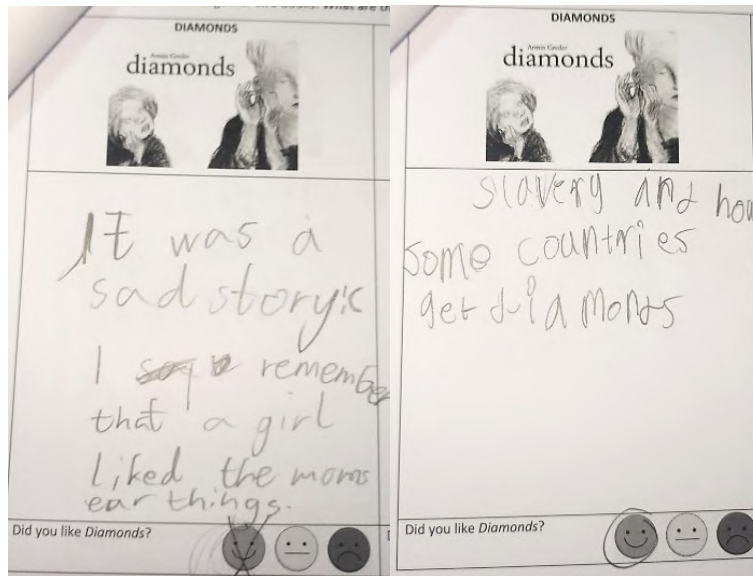 DIAMONDS
Armin Greder
diamonds
It was a
sad story:(
I remember
that a girl
liked the moms
ear things.
Did you like Diamonds?
DIAMONDS
Armin Greder
diamonds
slavery and how
some countries
get diamonds
Did you like Diamonds?